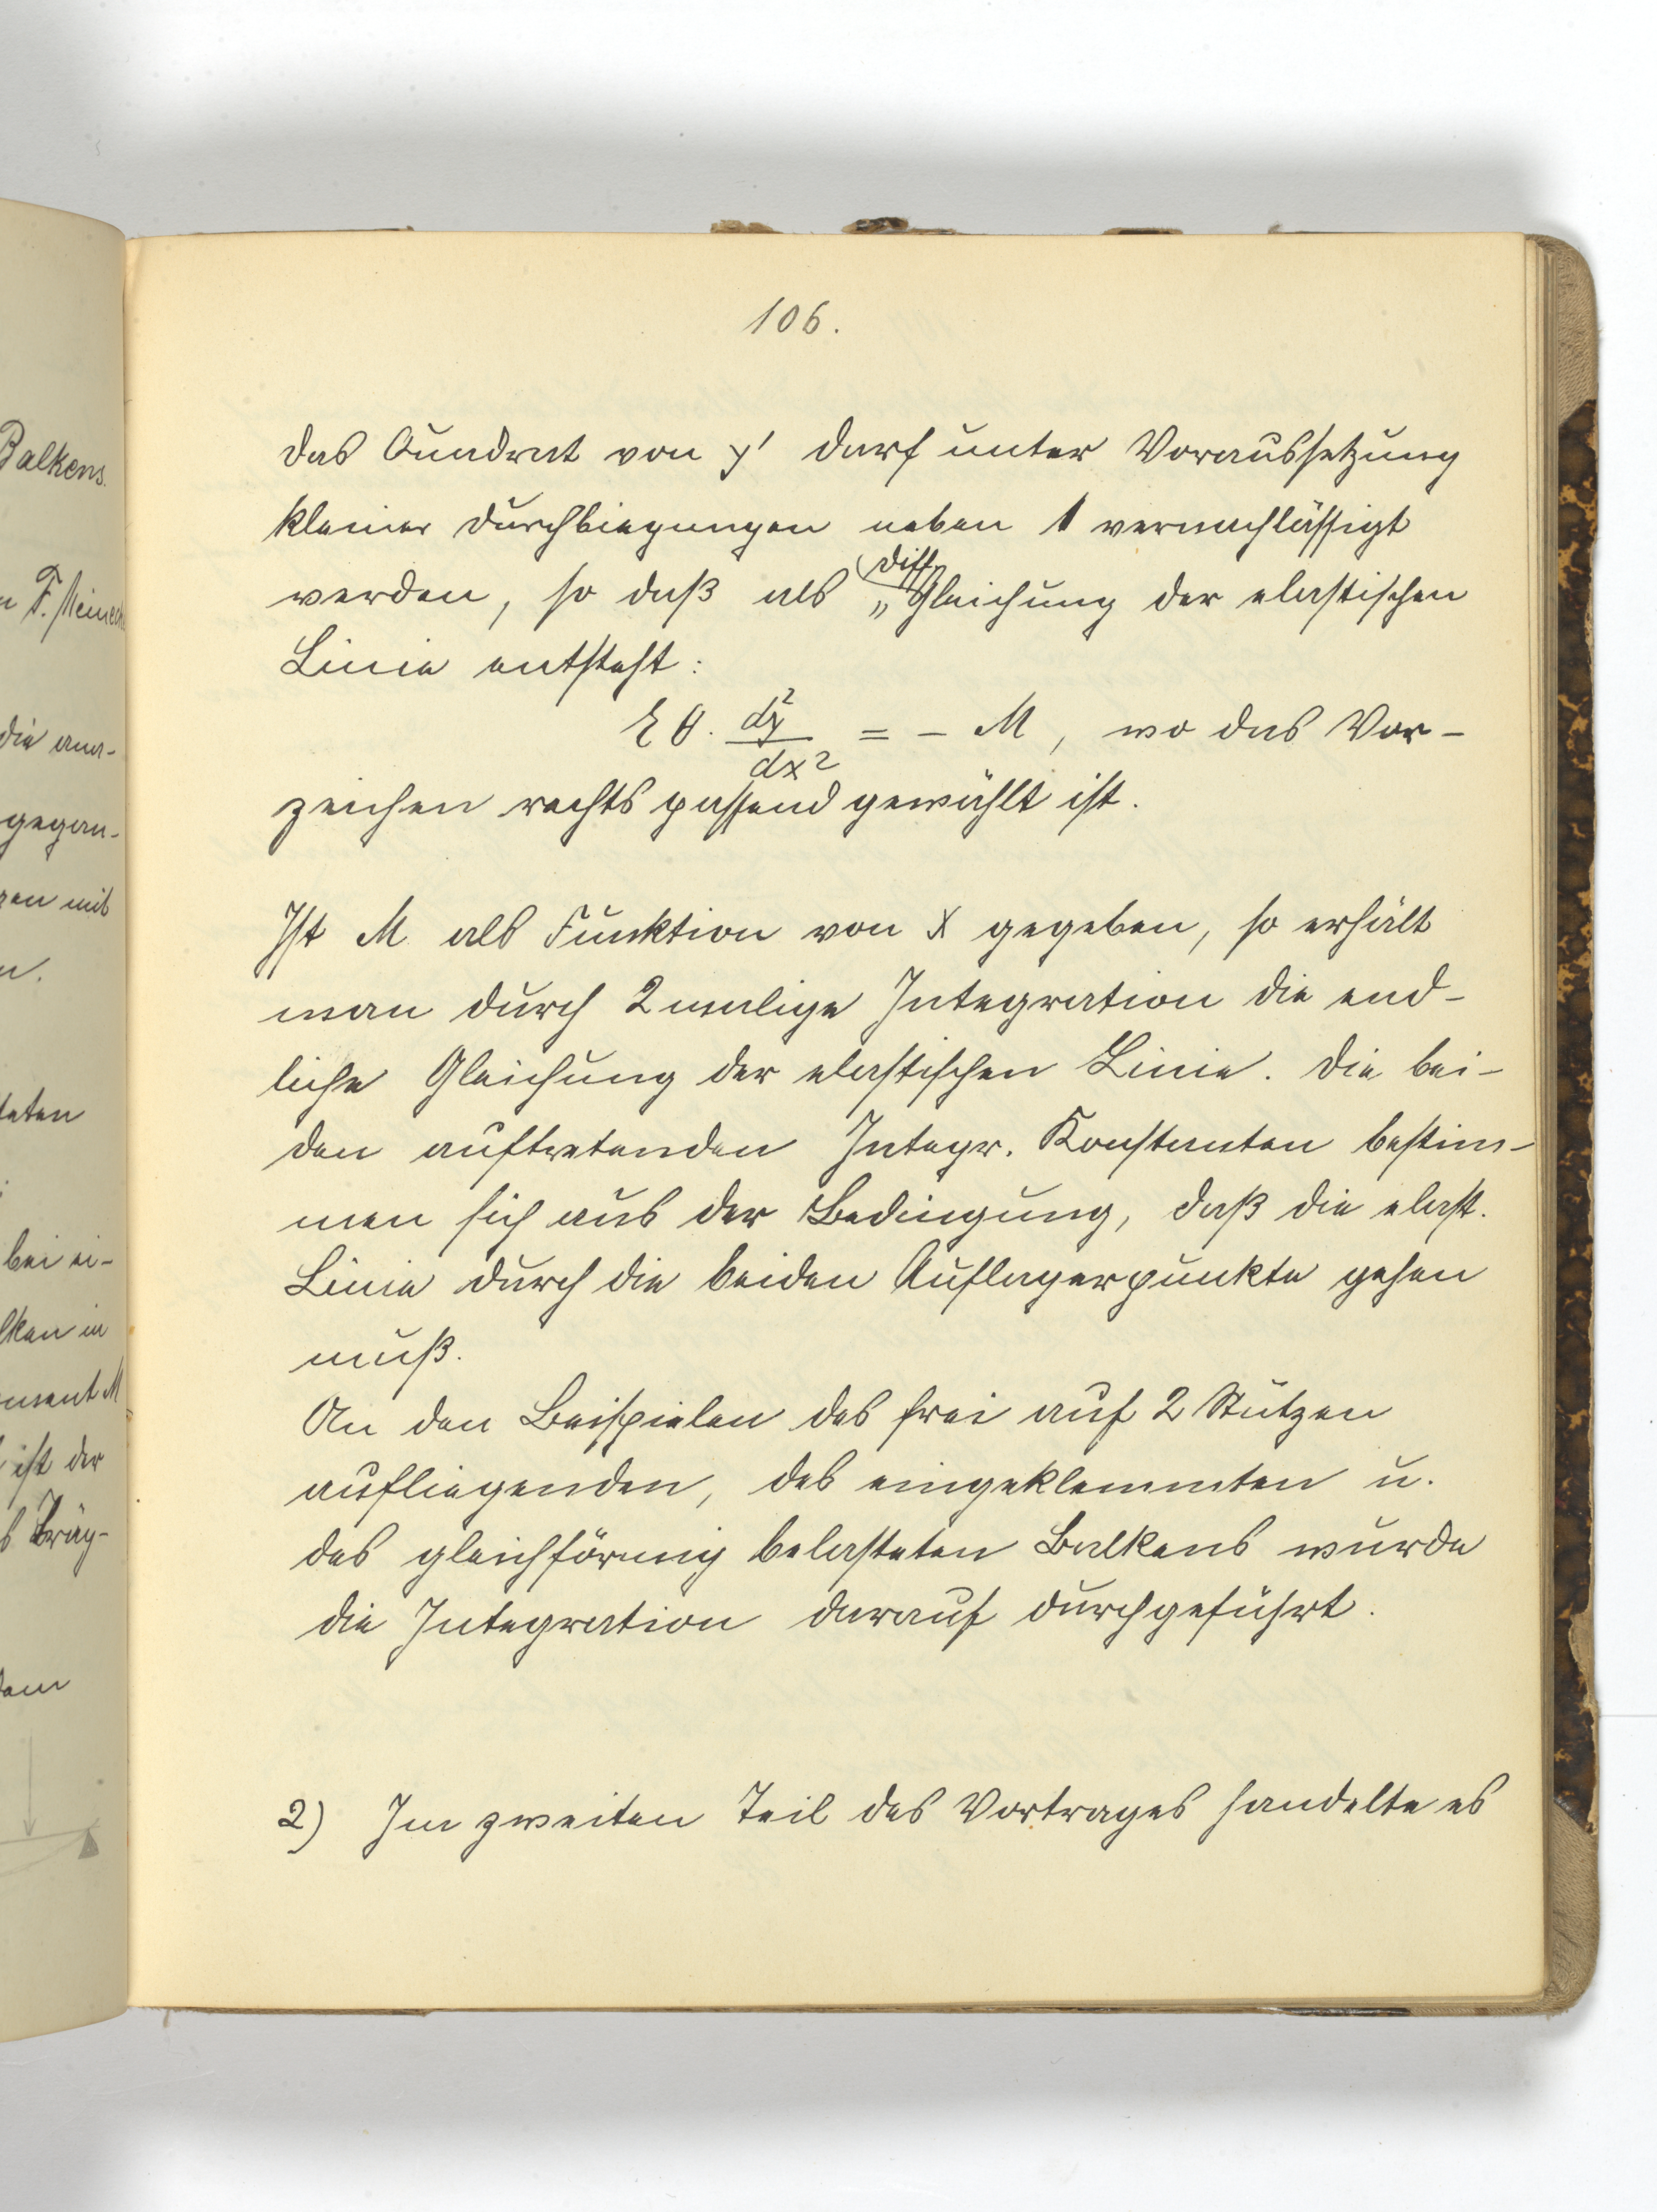 106.
das Quadrat von y' darf unter Voraussetzung
kleiner Durchbiegungen neben 1 vernachlässigt
werden, so daß als Diff. „Gleichung der elastischen
Linie entsteht:
E θ. d²y/dx² = - M, wo das Vor-
zeichen rechts passend gewählt ist.
Ist M als Funktion von x gegeben, so erhält
man durch 2malige Integration die end-
liche Gleichung der elastischen Linie. Die bei-
den auftretenden Integr. Konstanten bestim-
men sich aus der Bedingung, daß die elast.
Linie durch die beiden Auflagerpunkte gehen
muß.
An den Beispielen des frei auf 2 Stützen
aufliegenden, des eingeklemmten u.
des gleichförmig belasteten Balkens wurde
die Integration darauf durchgeführt.
2) Im zweiten Teil des Vortrages handelte es
Balkens.
F.
die
gegan-
mit
bei ei-
M
ist der